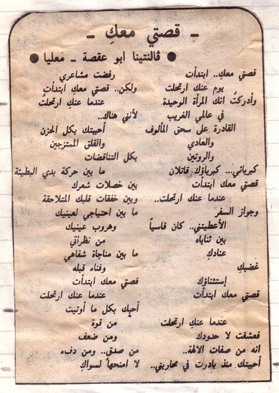 ـ قصتي معكِ ـ
● ڤالنتينا ابو عقصة ـ معليا ●
قصتي معكِ.. ابتدأت
يوم عنك ارتحلت
وأدركتُ انك المرأة الوحيدة
في عالمي الغريب
القادرة على سحق المألوف
والعادي
والروتين
كبريائي.. كبرياؤك قاتلان
قصتي معك ابتدأت
عندما عنك ارتحلت..
وجواز السفر
الأعطيتني.. كان قاسياً
بين ثناياه
عنادكِ
غضبكِ
إستثناؤك
قصتي معك ابتدأت
عندما عنك ارتحلت
فعشقت لا حدودك
انه من صفات الالهة..
أحببتك منذ بادرت في محاربتي..
وفضت مشاعري
ولكن.. قصتي معك ابتدأت
عندما عنك ارتحلت
لأنني هناك..
أحببتك بكل الحزن
والقلق الممتزجين
بكل التناقضات
ما بين حركة يدي البطيئة
بين خصلات شعرك
وبين خفقات قلبك المتلاحقة
ما بين احتياجي لعينيك
وهروب عينيك
من نظراتي
ما بين مناجاة شفاهي
وفناء قبله
قصتي معك ابتدأت
عندما عنك ارتحلت
أحبك بكل ما أوتيت
من قوة
ومن ضعف
من صدق.. ومن دفء
لا امنحها لسواكِ